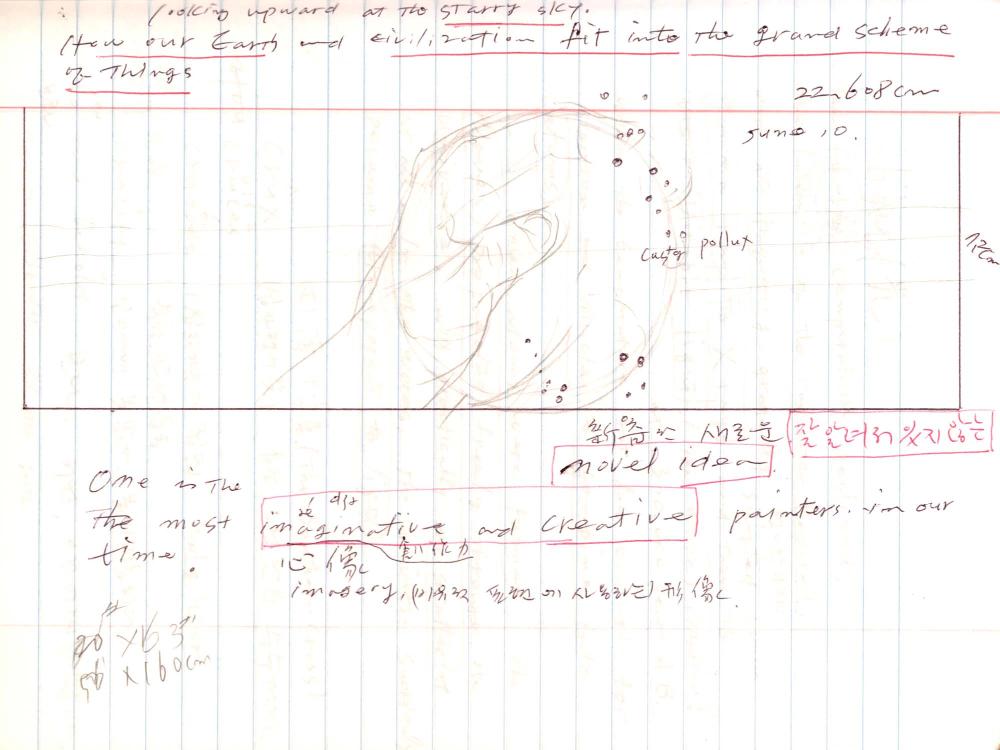 looking upward at the starry sky.
How our Earth and civilization fit into the grand scheme
of Things
22.608cm
June 10.
Castor pollux
새로운 잘 알려져 있지 않은
novel idea.
One is the
The most imaginative and creative painters in our
time.
心像 創作力
imagery, 표현에 사용하는 形像
20" x 63"
x 160cm